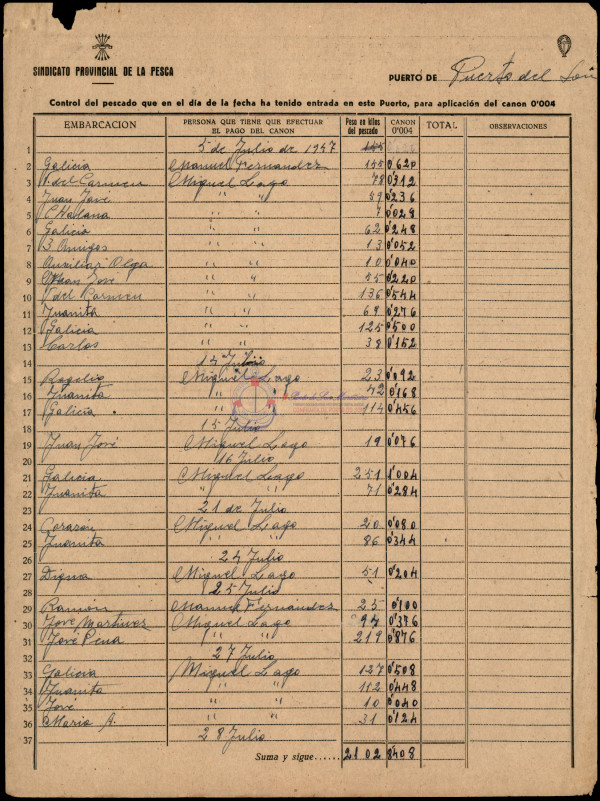 SINDICATO PROVINCIAL DE LA PESCA
PUERTO DE Puerto del Son
Control del pescado que en el día de la fecha ha tenido entrada en este Puerto, para aplicación del canon 0'004
EMBARCACION PERSONA QUE TIENE QUE EFECTUAR EL PAGO DEL CANON Peso en kilos del pescado CANON 0'004 TOTAL OBSERVACIONES
1 5 de Julio de 1947 145
2 Galicia Manuel Fernandez 155 0'620
3 V. del Carmen Miguel Lago 78 0'312
4 Juan José " " 59 0'236
5 C Habana " " 7 0'028
6 Galicia " " 62 0'248
7 3 Amigos " " 13 0'052
8 Auxiliar Olga " " 10 0'040
9 Juan José " " 55 0'220
10 V del Carmen " " 136 0'544
11 Juanita " " 69 0'276
12 Galicia " " 125 0'500
13 Carlos " " 38 0'152
14 14 Julio
15 Rogelio Miguel Lago 23 0'092
16 Juanita " " 42 0'168
17 Galicia " " 114 0'456
18 15 Julio
19 Juan José Miguel Lago 19 0'076
20 16 Julio
21 Galicia Miguel Lago 251 1'004
22 Juanita " " 71 0'284
23 21 de Julio
24 Corazón Miguel Lago 20 0'080
25 Juanita " " 86 0'344
26 24 Julio
27 Digna Miguel Lago 51 0'204
28 25 Julio
29 Ramón Manuel Fernández 25 0'100
30 José Martinez Miguel Lago 94 0'376
31 José Pena " " 219 0'876
32 27 Julio
33 Galicia Miguel Lago 127 0'508
34 Juanita " " 112 0'448
35 José " " 10 0'040
36 Maria A. " " 31 0'124
37 28 Julio
Suma y sigue...... 2102 8'408